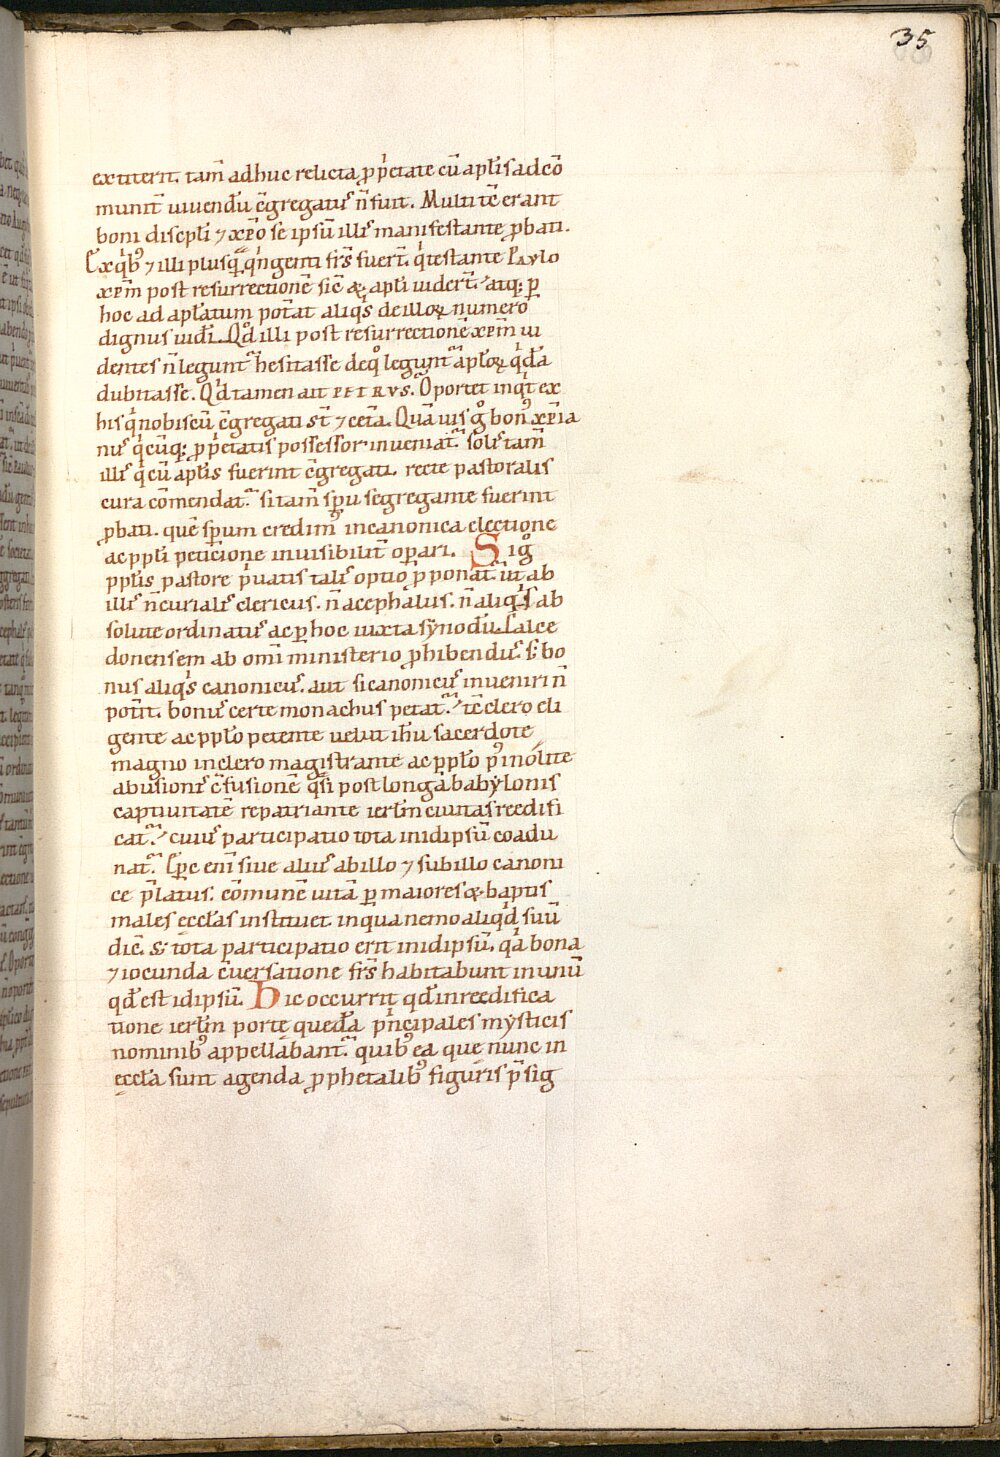 35
extiterit. tam̄ adhuc relicta ꝓp̄etate cū apl̄is ad cō
munit̄ uiuendū c̄gregatꝰ n̄ fuit. Multi tc̄ erant
boni discipl̄i ⁊ xp̄o se ipsū illiꝰ manifestante ꝓbati.
Ex qͥbꝫ ⁊ illi plusqͣ qͥngenti fr̄s fuer̄t. qͥ testante Pavlo
xp̄m post resurrectionē sic̄ & apl̄i uider̄t. atqꝫ ꝑ
hoc ad apl̄atum pot̄at aliqͥs de illoꝝ numero
dignus uidi. Qd̄ illi post resurrectionē xp̄m ui
dentes n̄ legunt᷑ hesitasse de qͦ legunt᷑ apl̄oꝝ qͥdā
dubitasse. Qd̄ tamen ait PETRVS. Oportet inqͥt ex
his qͥ nobiscū c̄gregati st̄ ⁊ cet̄a. Quāuis gͦ bonꝰ xp̄ia
nꝰ qͥcūqꝫ ꝓp̄etatis possessor inueniat᷑. solꝰ tam̄
illiꝰ qͥ cū apl̄is fuerint c̄gregati. recte pastoralis
cura cōmendat᷑. si tam̄ sp̄u segregante fuerint
ꝓbati. quē sp̄um credimꝰ in canonica electione
ac ppl̄i peticione inuisibilit̄ oꝑari. Si gͦ
ppl̄is pastore pͥuatis talis optio ꝓponat᷑. ut ab
illis n̄ curialis clericus. n̄ acephalus. n̄ aliqͥs ab
solute ordinatus ac ꝑ hoc iuxta synodū Calce
donensem ab omī ministerio ꝓhibendus. s; bo
nus aliqͥs canonicus. aut si canonicus inueniri n̄
potit. bonus certe monachus petat᷑. tc̄ clero eli
gente ac ppl̄o petente uelut ih̄u sacerdote
magno in clero magistrante ac ppl̄o pꝰ in olite
abusionis c̄fusionē qͣsi post longā babylonis
captiuitatē repatriante ierl̄m ciuitas reedifi
cat᷑. cuius participatio tota in idipsū coadu
nat᷑. Hic eni siue alius ab illo ⁊ sub illo canoni
ce p̄latus. cōmunē uitā ꝑ maiores & baptis
males eccl̄as instituet. in qua nemo aliqͥd suū
dic̄. s; tota participatio erit in idipsū. qͥa bona
⁊ iocunda c̄uersatione fr̄s habitabunt in unū
qd̄ est idipsū. Hic occurrit qd̄ in reedifica
tione ierl̄m porte quedā pͥncipales mysticis
nominibꝫ appellabant᷑. quibꝫ ea que nunc in
eccl̄a sunt agenda ꝓphetalibꝫ figuris p̄sig